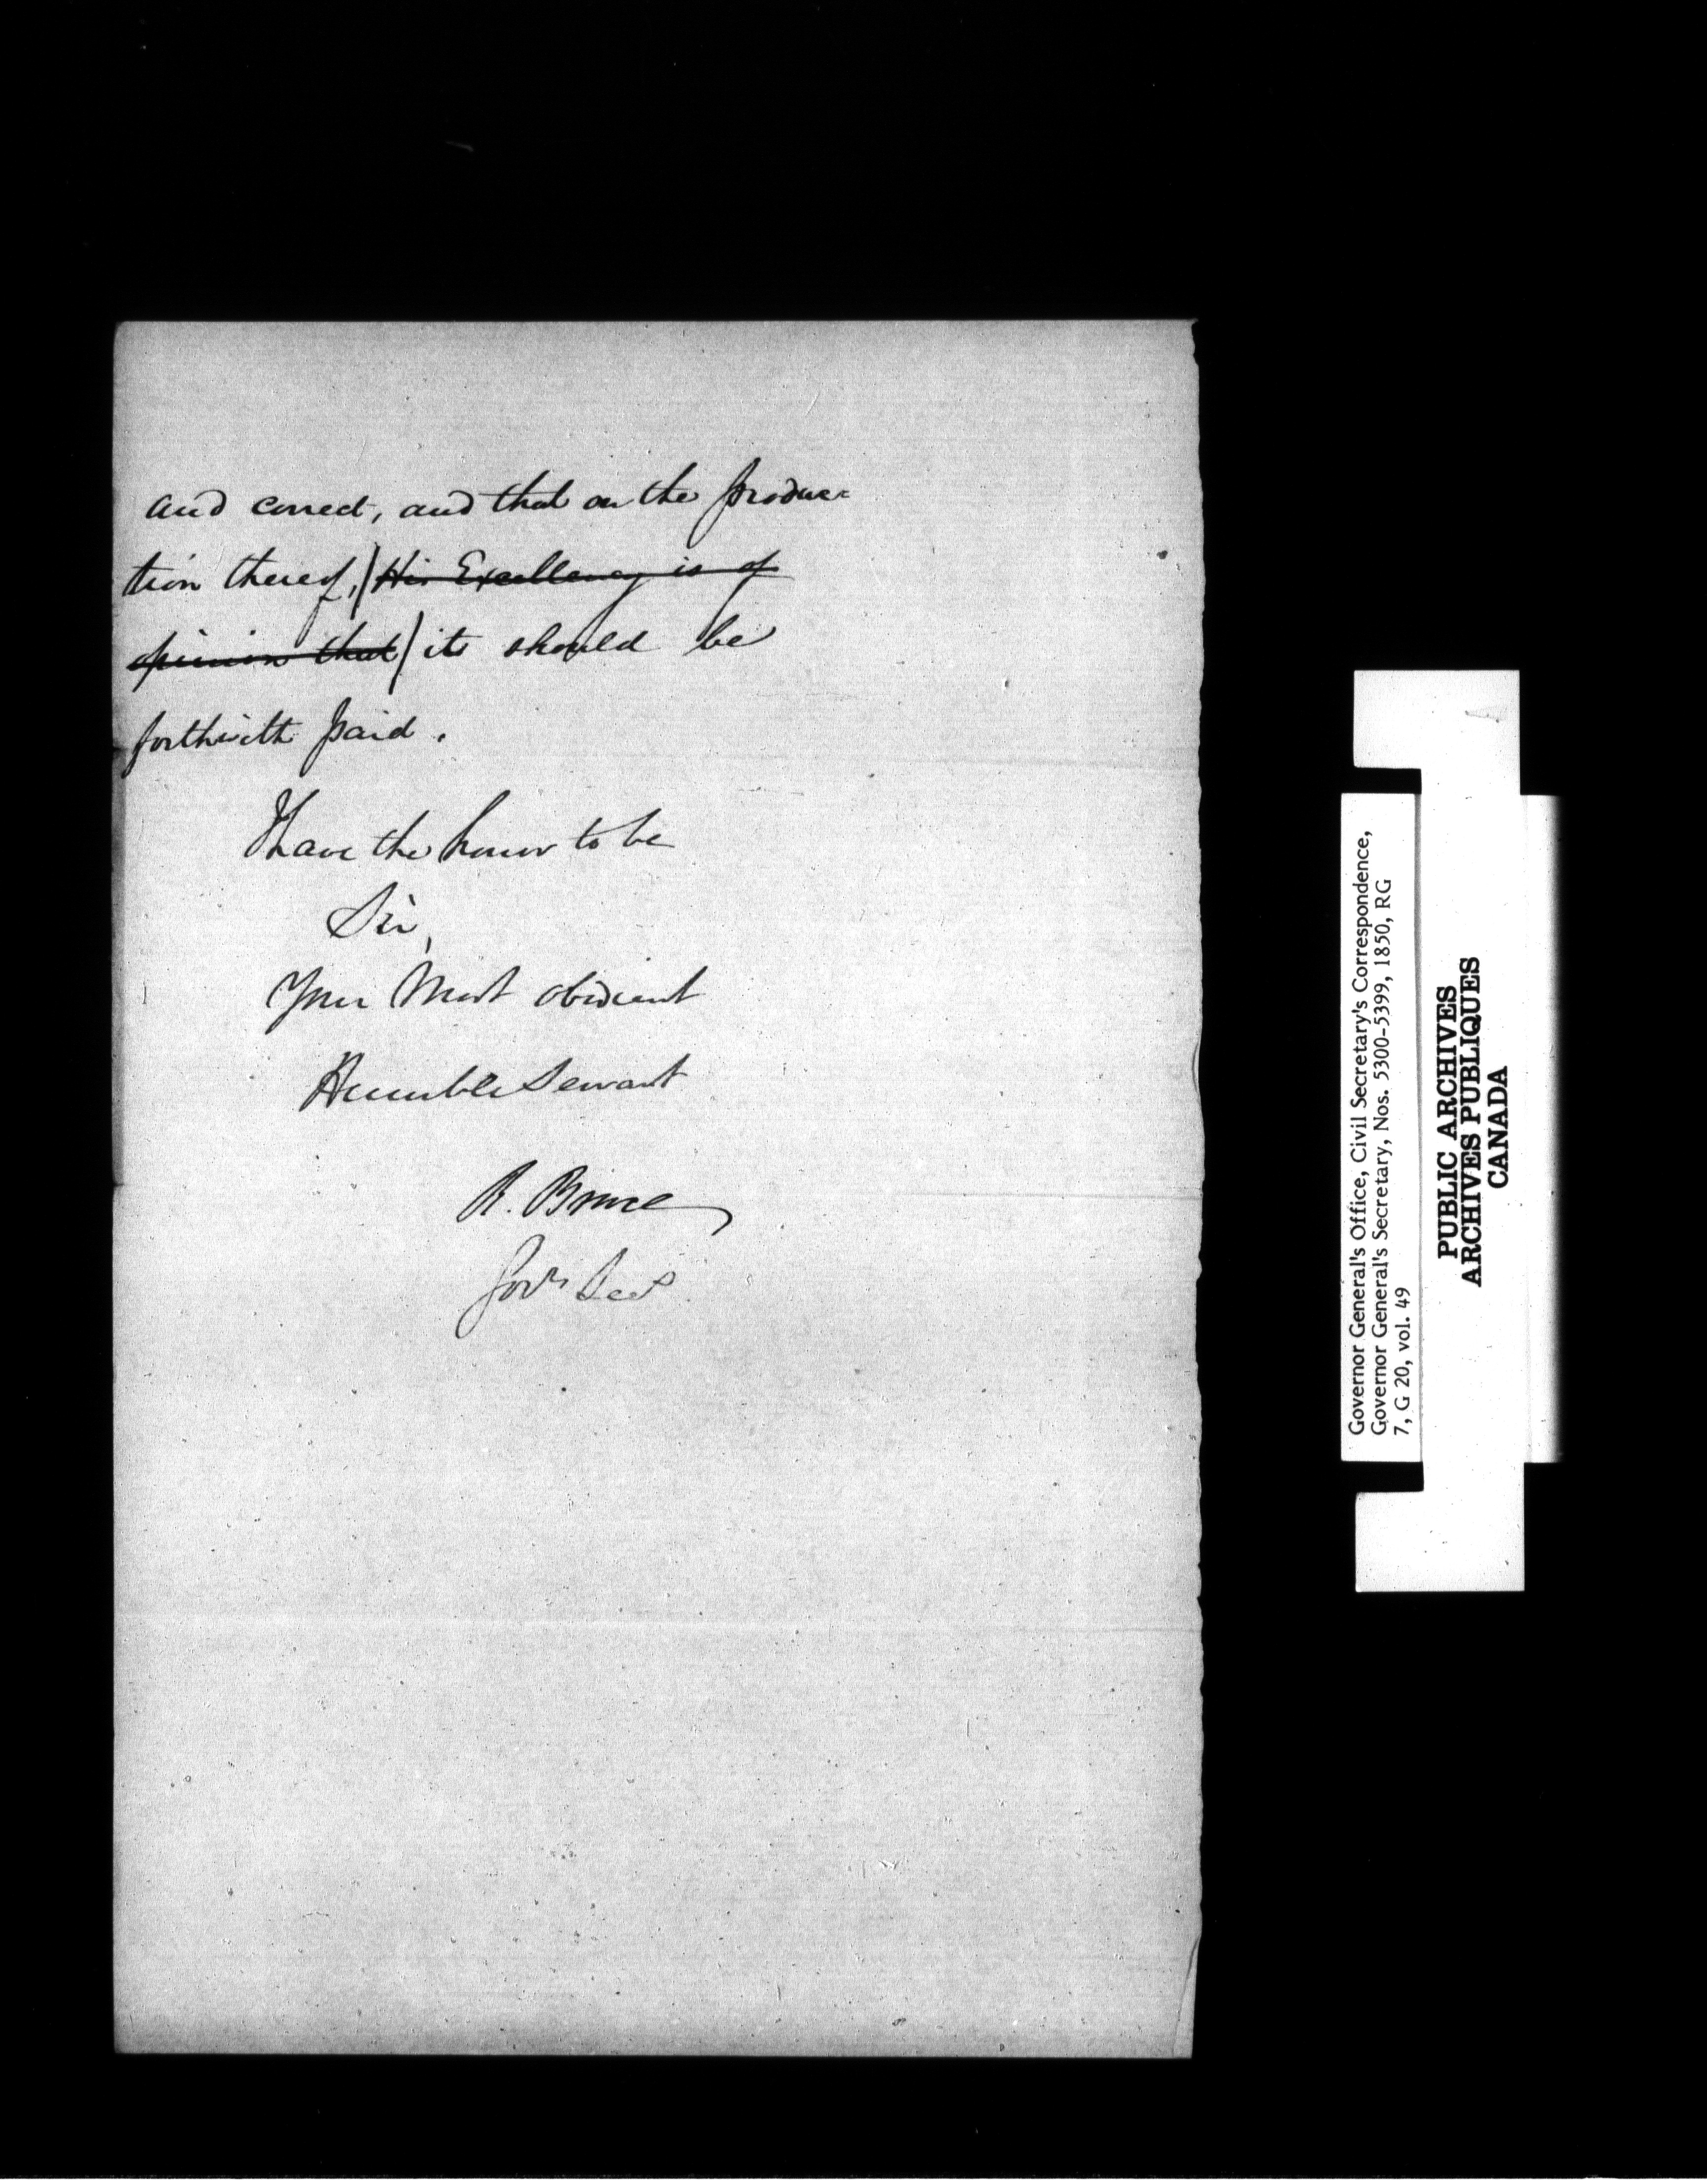 and correct, and that on the produc=
tion thereof, (His Excellency is of
opinion that) it should be
forthwith paid.
I have the honor to be
Sir,
Your Most obedient
Humble Servant
R. Bruce
Govrs Secy
Governor General's Office, Civil Secretary's Correspondence,
Governor General's Secretary, Nos. 5300-5399, 1850, RG
7, G 20, vol. 49
PUBLIC ARCHIVES
ARCHIVES PUBLIQUES
CANADA